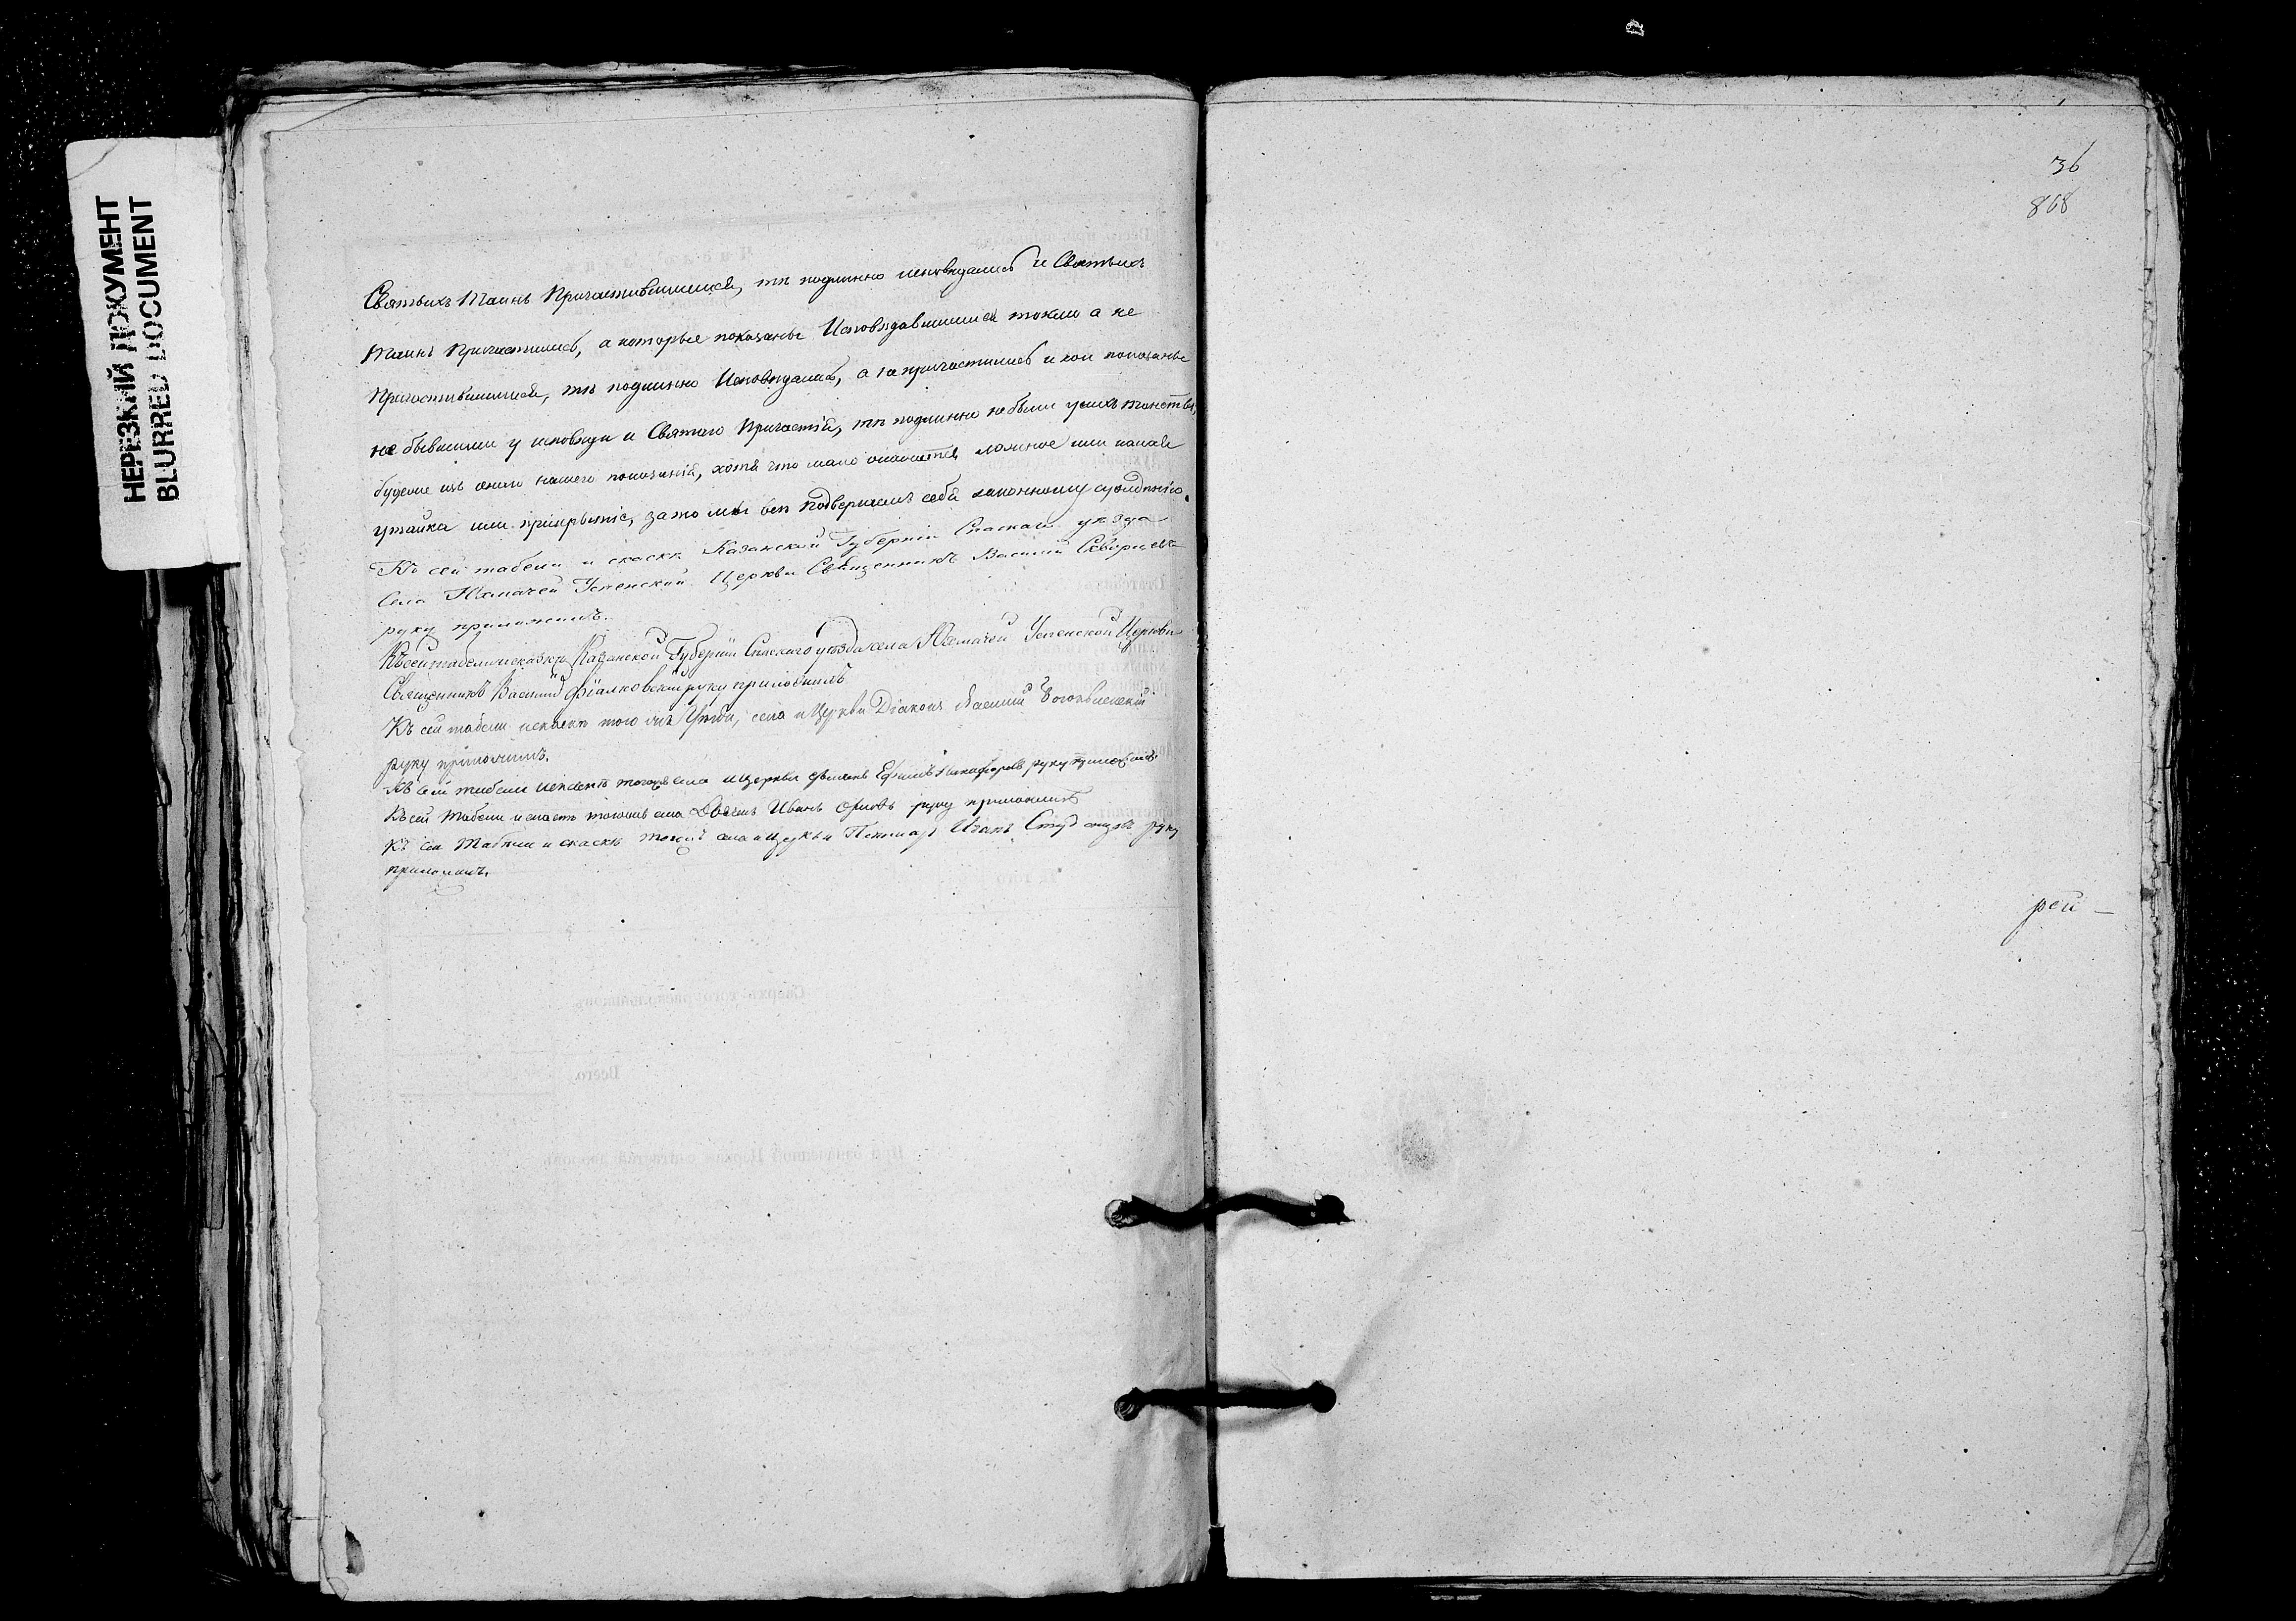 НЕРЕЗКИЙ ДОКУМЕНТ
BLURRED DOCUMENT
Святыхъ Таинъ Причастившимися, тѣ подлинно исповѣдались и Святыхъ
Таинъ Причастились, а которые показаны Исповѣдавшимися токмо а не
Причастившимися, тѣ подлинно Исповѣдались, а не причастились и кои показаны
не бывшими у исповѣди и Святаго Причастія, тѣ подлинно не были у сихъ таинствъ,
будеже изъ онаго нашего показанія, хотя что мало окажется ложное или какая
утайка или прикрытіе, за то мы всѣ подвергаемъ себя законному сужденію.
Къ сей табели и сказкѣ Казанской Губерніи Спаскаго уѣзда
Села Юхмачей Успенской Церкви Священникъ Василій Скворцевъ
руку приложилъ.
Къ сей табели и сказкѣ Казанской Губерніи Спаскаго уѣзда села Юхмачей Успенской Церкви
Священникъ Василий Фіалковскій руку приложилъ
Къ сей табели и сказкѣ того же Уѣзда, села и Церкви Діаконъ Василий Богоявленскій
руку приложилъ.
Къ сей табели и сказкѣ тогожъ села и церкви дьячекъ Ефимъ Никафоровъ руку приложилъ
Къ сей табели и сказкѣ тогожъ села Дьячекъ Иванъ Орловъ руку приложилъ
Къ сей Табели и сказкѣ тогожъ села и Церкви Пономарь Иванъ руку
приложилъ.
36
868
рей -
Сверхъ того раскольниковъ
Всего.